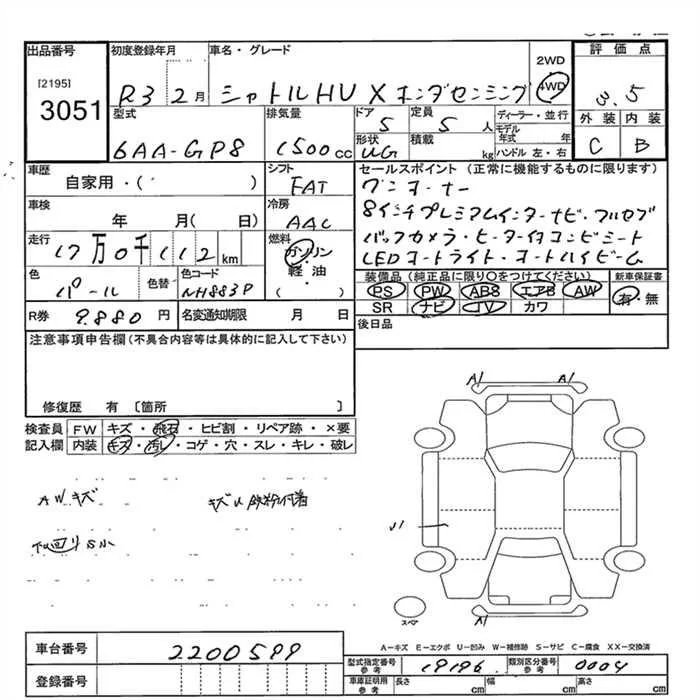 出品番号 初度登録年月 車名・グレード 評価点
[2195]
3051
R3 2月 シャトルHV X ホンダセンシング 2WD 4WD
3.5
型式 排気量 ドア 定員 ディーラー・並行 外装 内装
6AA-GP8 1500cc 5 5人 モデル年式 年 C B
形状 積載 ハンドル 左・右
UG kg
車歴 シフト セールスポイント（正常に機能するものに限ります）
自家用・( ) FAT ワンオーナー
車検 冷房 8インチプレミアムインターナビ・フルセグ
年 月( 日) AAC バックカメラ・ヒーター付コンビシート
走行 燃料 LEDオートライト・オートハイビーム
17万0千112km ガソリン・軽油・( )
色 色替 色コード 装備品（純正品に限り○をつけてください） 新車保証書
パール NH883P PS PW ABS エアB AW 有・無
SR ナビ TV カワ
R券 9.880円 名変通知期限 月 日 後日品
注意事項申告欄（不具合内容等は具体的に記入して下さい）
修復歴 有 〔箇所 〕
検査員 FW キズ・飛石・ヒビ割・リペア跡・×要
記入欄 内装 キズ・汚レ・コゲ・穴・スレ・キレ・破レ
A1 A1
AWキズ キズU 鉄粉付着
下回りS小
A1
スペア
A－キズ E－エクボ U－凹み W－補修跡 S－サビ C－腐食 XX－交換済
車台番号 2200599
型式指定番号 参考 19196 類別区分番号 参考 0004
登録番号 車庫証明用 参考 長さ cm 幅 cm 高さ cm